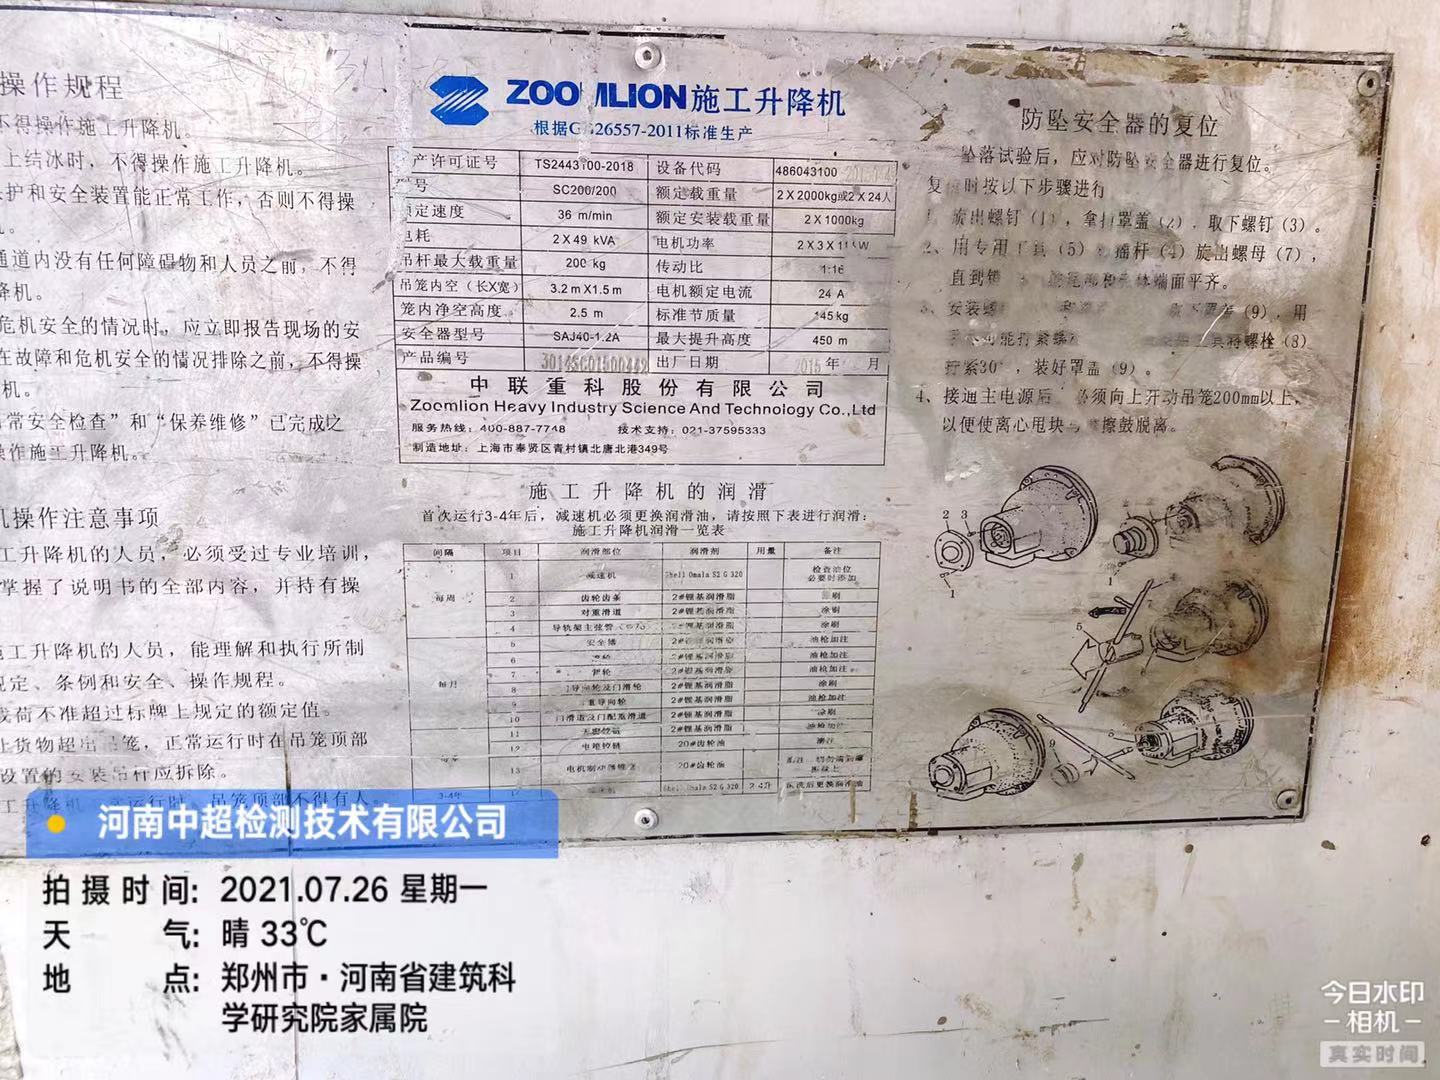 操作规程
不得操作施工升降机。
上结冰时，不得操作施工升降机。
护和安全装置能正常工作，否则不得操
通道内没有任何障碍物和人员之前，不得
降机。
危机安全的情况时，应立即报告现场的安
在故障和危机安全的情况排除之前，不得操
机。
常安全检查”和“保养维修”已完成之
操作施工升降机。
机操作注意事项
工升降机的人员，必须受过专业培训，
掌握了说明书的全部内容，并持有操
施工升降机的人员，能理解和执行所制
规定、条例和安全、操作规程。
载荷不准超过标牌上规定的额定值。
货物超出吊笼，正常运行时在吊笼顶部
设置的安装吊杆应拆除。
ZOOMLION施工升降机
根据GB26557-2011标准生产
产许可证号 TS2443100-2018 设备代码 486043100
号 SC200/200 额定载重量 2X2000kg或2X24人
额定速度 36 m/min 额定安装载重量 2X1000kg
电耗 2X49 kVA 电机功率 2X3X11kW
吊杆最大载重量 200 kg 传动比 1:16
吊笼内空（长X宽） 3.2mX1.5m 电机额定电流 24 A
笼内净空高度 2.5 m 标准节质量 145kg
安全器型号 SAJ40-1.2A 最大提升高度 450 m
产品编号 出厂日期 2015年 月
中联重科股份有限公司
Zoomlion Heavy Industry Science And Technology Co.,Ltd
服务热线：400-887-7748 技术支持：021-37595333
制造地址：上海市奉贤区青村镇北唐北港349号
施工升降机的润滑
首次运行3-4年后，减速机必须更换润滑油，请按照下表进行润滑：
施工升降机润滑一览表
间隔 项目 润滑部位 润滑剂 用量 备注
每周 1 减速机 Shell Omala S2 G 320 检查油位 必要时添加
2 齿轮齿条 2#锂基润滑脂 涂刷
3 对重滑道 2#锂基润滑脂 涂刷
4 导轨架主弦管 2#锂基润滑脂 涂刷
5 安全器 2#锂基润滑脂 油枪加注
每月 6 2#锂基润滑脂 油枪加注
7 2#锂基润滑脂 油枪加注
8 导向轮及门滑轮 2#锂基润滑脂 涂刷
9 重导向轮 2#锂基润滑脂 油枪加注
10 门滑道及门配重滑道 2#锂基润滑脂 涂刷
11 2#锂基润滑脂 油枪加注
12 电缆铰链 20#齿轮油 滴注
13 电机制动器锥 20#齿轮油
3-4年 Shell Omala S2 G 320
防坠安全器的复位
坠落试验后，应对防坠安全器进行复位。
复位时按以下步骤进行
1、旋出螺钉（1），拿掉罩盖（2），取下螺钉（3）。
2、用专用工具（5）摇杆（4）旋出螺母（7），
直到 端面平齐。
3、安装 （9），用
螺栓（8）
拧紧30°，装好罩盖（9）。
4、接通主电源后 必须向上开动吊笼200mm以上，
以便使离心甩块与摩擦鼓脱离。
2 3
1
1
5
9
6
河南中超检测技术有限公司
拍摄时间：2021.07.26 星期一
天气：晴 33℃
地点：郑州市·河南省建筑科
学研究院家属院
今日水印
-相机-
真实时间